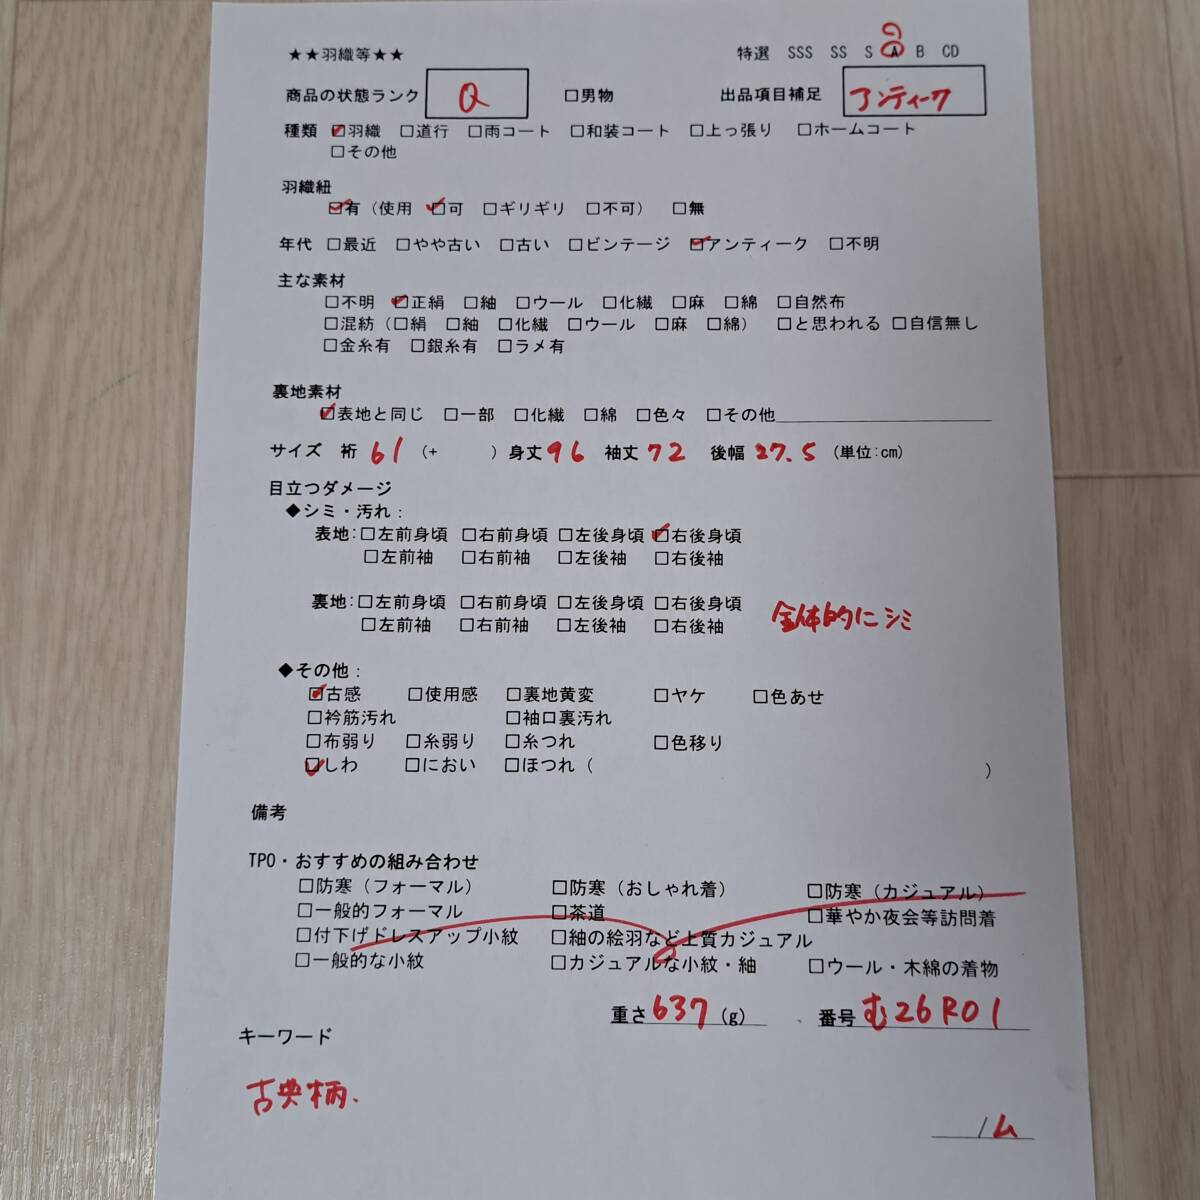 ★★羽織等★★ 特選 SSS SS S A B CD
商品の状態ランク Q □男物 出品項目補足 アンティーク
種類 ☑羽織 □道行 □雨コート □和装コート □上っ張り □ホームコート
□その他
羽織紐
☑有（使用 ☑可 □ギリギリ □不可） □無
年代 □最近 □やや古い □古い □ビンテージ ☑アンティーク □不明
主な素材
□不明 ☑正絹 □紬 □ウール □化繊 □麻 □綿 □自然布
□混紡（□絹 □紬 □化繊 □ウール □麻 □綿） □と思われる □自信無し
□金糸有 □銀糸有 □ラメ有
裏地素材
☑表地と同じ □一部 □化繊 □綿 □色々 □その他
サイズ 裄 61 （+ ）身丈 96 袖丈 72 後幅 27.5 （単位:cm）
目立つダメージ
◆シミ・汚れ：
表地：□左前身頃 □右前身頃 □左後身頃 ☑右後身頃
□左前袖 □右前袖 □左後袖 □右後袖
裏地：□左前身頃 □右前身頃 □左後身頃 □右後身頃
□左前袖 □右前袖 □左後袖 □右後袖 全体的にシミ
◆その他：
☑古感 □使用感 □裏地黄変 □ヤケ □色あせ
□衿筋汚れ □袖口裏汚れ
□布弱り □糸弱り □糸つれ □色移り
☑しわ □におい □ほつれ（ ）
備考
TPO・おすすめの組み合わせ
□防寒（フォーマル） □防寒（おしゃれ着） □防寒（カジュアル）
□一般的フォーマル □茶道 □華やか夜会等訪問着
□付下げドレスアップ小紋 □紬の絵羽など上質カジュアル
□一般的な小紋 □カジュアルな小紋・紬 □ウール・木綿の着物
重さ 637 （g） 、番号 む26R01
キーワード
古典柄.
/ム